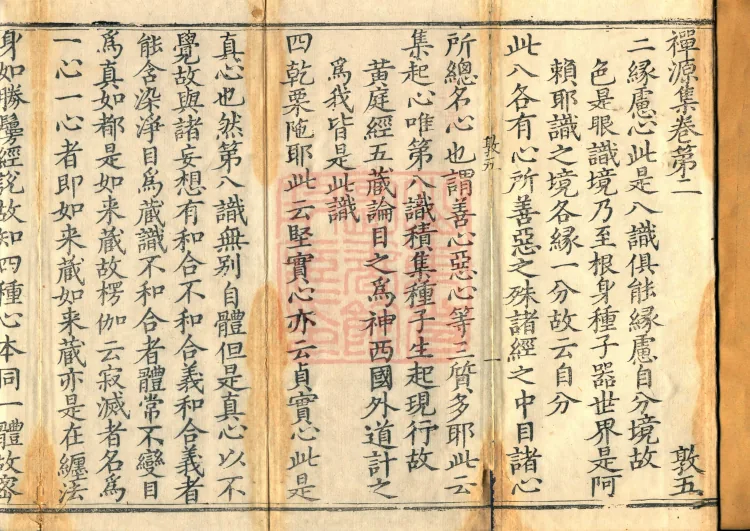 禪源集卷第二 敦五
二緣慮心此是八識俱能緣慮自分境故
色是眼識境乃至根身種子器世界是阿
賴耶識之境各緣一分故云自分
此八各有心所善惡之殊諸經之中目諸心
敦五 一
所總名心也謂善心惡心等三質多耶此云
集起心唯第八識積集種子生起現行故
黃庭經五藏論目之爲神西國外道計之
爲我皆是此識
四乾栗陁耶此云堅實心亦云貞實心此是
真心也然第八識無别自體但是真心以不
覺故與諸妄想有和合不和合義和合義者
能含染淨目爲藏識不和合者體常不變目
爲真如都是如来藏故楞伽云寂滅者名爲
一心一心者即如来藏如来藏亦是在纏法
身如勝鬘經說故知四種心本同一體故密